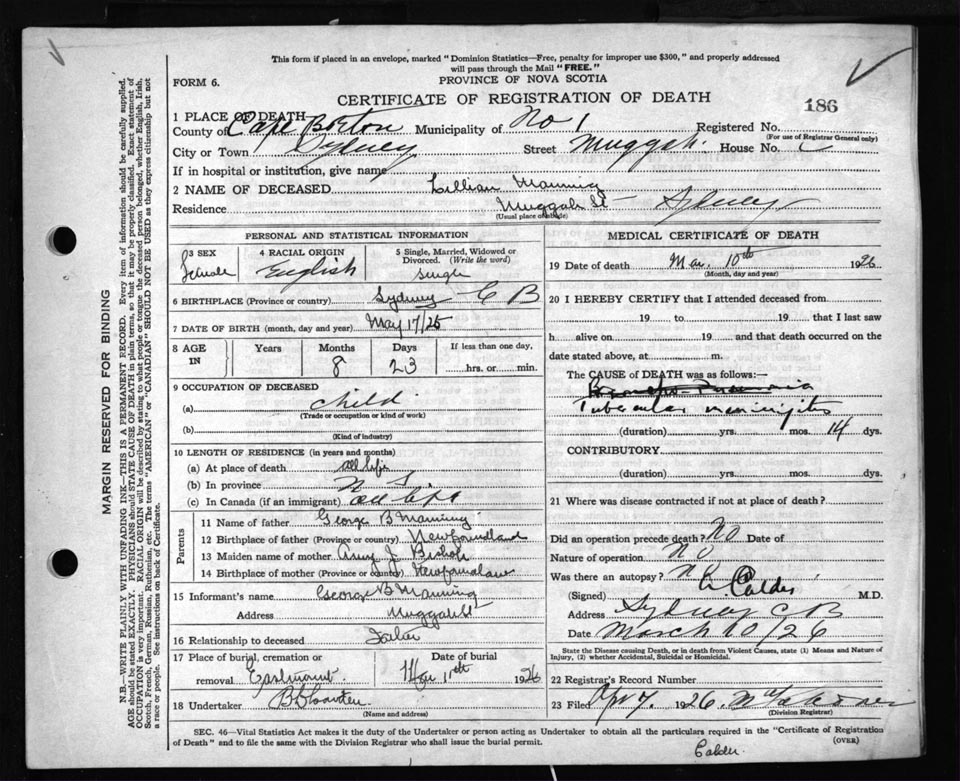 This form if placed in an envelope, marked "Dominion Statistics—Free, penalty for improper use $300," and properly addressed
will pass through the Mail "FREE."
FORM 6.
PROVINCE OF NOVA SCOTIA
CERTIFICATE OF REGISTRATION OF DEATH
186
1 PLACE OF DEATH
County of Cape Breton Municipality of No 1 Registered No.
(For use of Registrar General only)
City or Town Sydney Street Muggah. House No.
If in hospital or institution, give name
2 NAME OF DECEASED Lillian Manning
Residence Muggah St Sydney
(Usual place of abode)
PERSONAL AND STATISTICAL INFORMATION
3 SEX Female
4 RACIAL ORIGIN English
5 Single, Married, Widowed or Divorced. (Write the word) single
6 BIRTHPLACE (Province or country) Sydney C B
7 DATE OF BIRTH (month, day and year) May 17/25
8 AGE IN Years Months 8 Days 23 If less than one day, hrs. or min.
9 OCCUPATION OF DECEASED
(a) child
(Trade or occupation or kind of work)
(b)
(Kind of industry)
10 LENGTH OF RESIDENCE (in years and months)
(a) At place of death all life
(b) In province
(c) In Canada (if an immigrant) all life
Parents
11 Name of father George B Manning
12 Birthplace of father (Province or country) Newfoundland
13 Maiden name of mother Amy J Bishop
14 Birthplace of mother (Province or country) Newfoundland
15 Informant's name George B Manning
Address Muggah St
16 Relationship to deceased Father
17 Place of burial, cremation or removal Eastmount
Date of burial Mar 11th 1926
18 Undertaker
(Name and address)
MEDICAL CERTIFICATE OF DEATH
19 Date of death Mar. 10th 1926
(Month, day and year)
20 I HEREBY CERTIFY that I attended deceased from
19 to 19 that I last saw
h alive on 19 and that death occurred on the
date stated above, at m.
The CAUSE of DEATH was as follows:—
Broncho Pneumonia
Tubercular meningitis
(duration) yrs. mos. 14 dys.
CONTRIBUTORY
(duration) yrs. mos. dys.
21 Where was disease contracted if not at place of death?
Did an operation precede death? NO Date of
Nature of operation NO
Was there an autopsy? NO
(Signed) Calder M.D.
Address Sydney C B
Date March 10/26
State the Disease causing Death, or in death from Violent Causes, state (1) Means and Nature of
Injury, (2) whether Accidental, Suicidal or Homicidal.
22 Registrar's Record Number
23 Filed Apr 7. 1926.
(Division Registrar)
SEC. 46—Vital Statistics Act makes it the duty of the Undertaker or person acting as Undertaker to obtain all the particulars required in the "Certificate of Registration
of Death" and to file the same with the Division Registrar who shall issue the burial permit.
(OVER)
Calder.
MARGIN RESERVED FOR BINDING
N.B.—WRITE PLAINLY WITH UNFADING INK—THIS IS A PERMANENT RECORD. Every item of information should be carefully supplied.
AGE should be stated EXACTLY. PHYSICIANS should STATE CAUSE OF DEATH in plain terms, so that it may be properly classified. Exact statement of
OCCUPATION is very important. RACIAL ORIGIN will be described by stating to what people or tongue the deceased person belonged, whether English, Irish,
Scotch, French, German, Russian, Ruthenian, etc. The terms "AMERICAN" or "CANADIAN" SHOULD NOT BE USED as they express citizenship but not
a race or people. See instructions on back of Certificate.